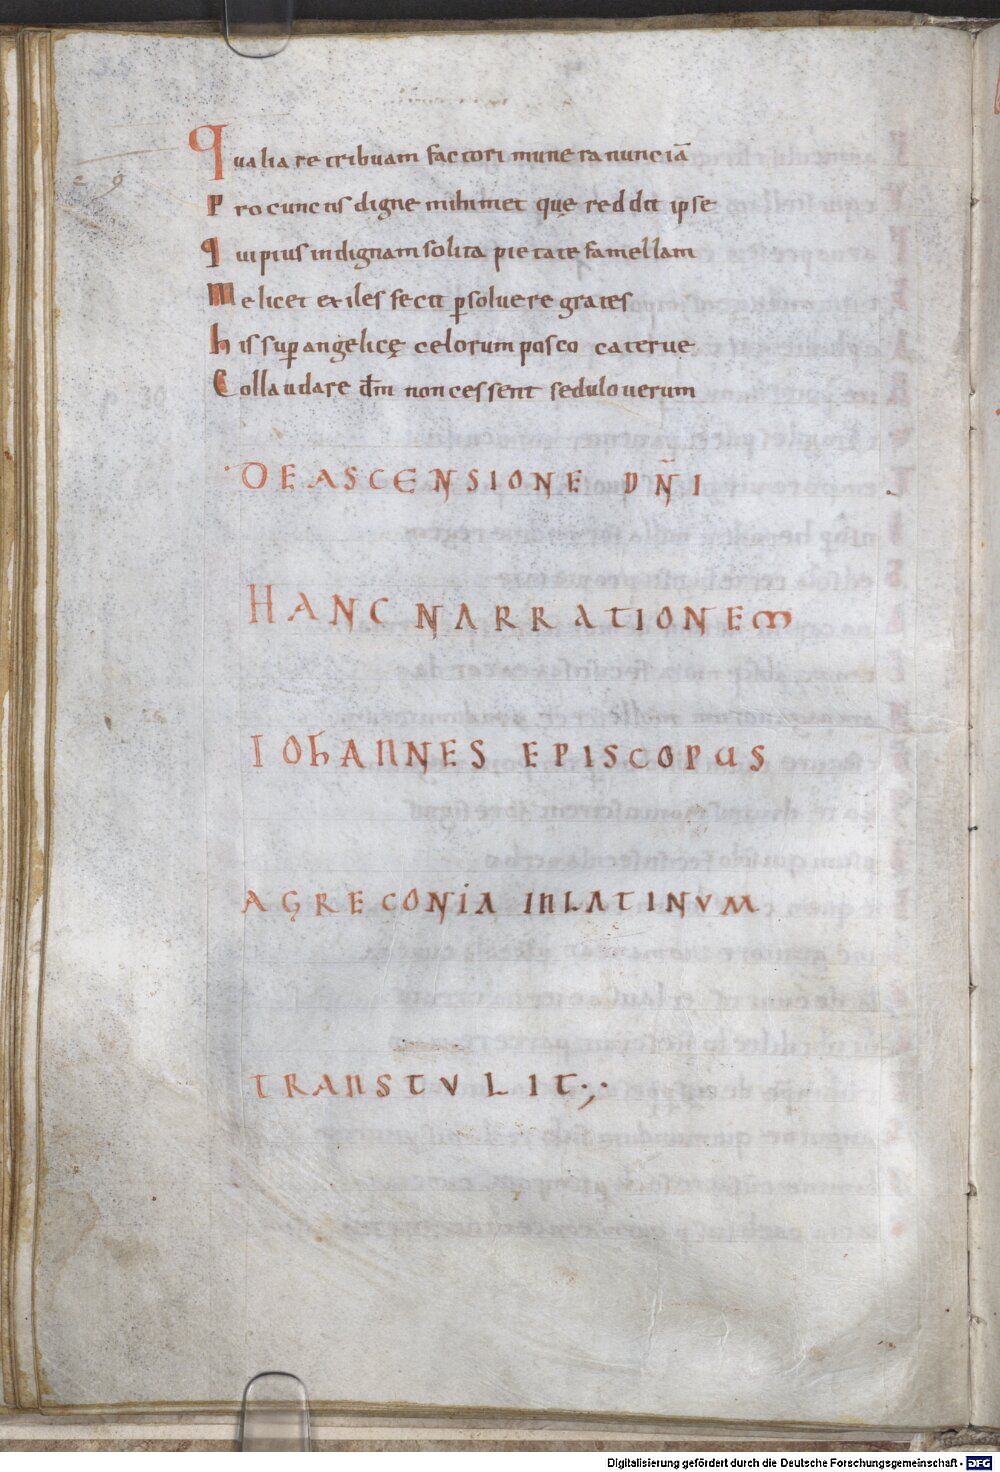 Qualia retribuam factori munera nunciā
Pro cunctis digne mihimet quę reddit ipse
Qui pius indignam solita pietate famellam
Me licet exiles fecit p̲soluere grates
his sup̲ angelicę celorum posco caterue
Collaudare dm̄ non cessent sedulo uerum
DE ASCENSIONE DÑI .
HANC NARRATIONEM
IOhANNES EPISCOPUS
A GRECONIA IN LATINVM
TRANSTVLIT·,·
Digitalisierung gefördert durch die Deutsche Forschungsgemeinschaft - DFG